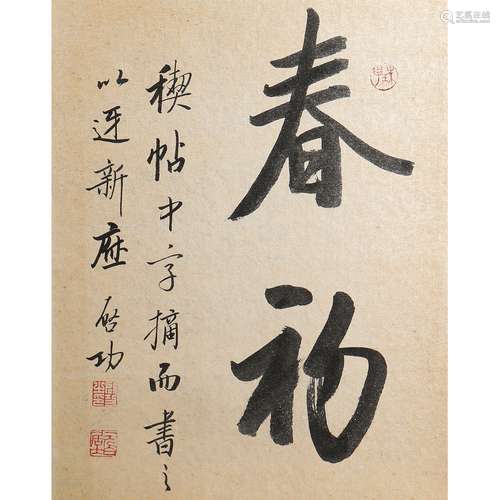 春初
禊帖中字摘而書之
以迓新歷 啓功